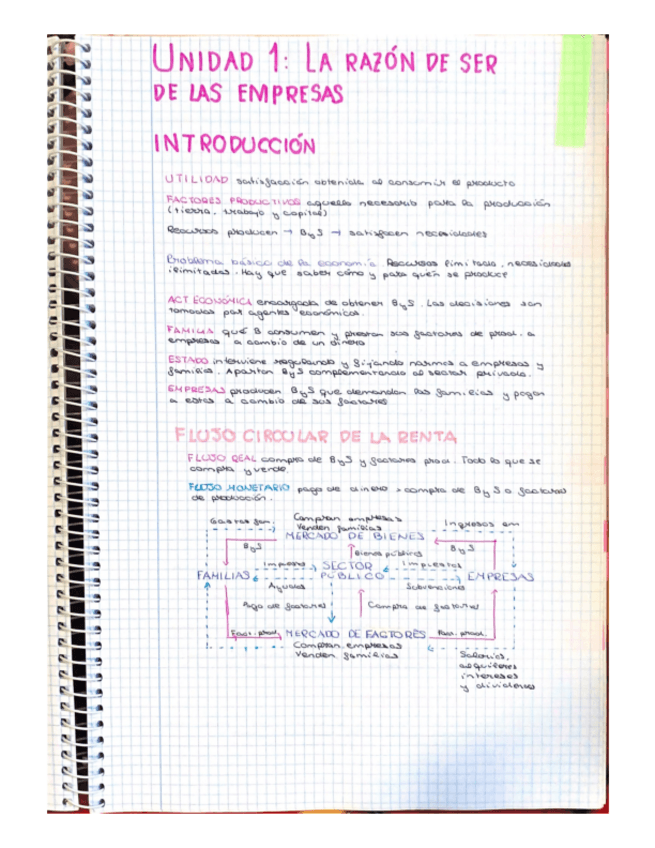 UNIDAD 1: LA RAZÓN DE SER
DE LAS EMPRESAS
INTRODUCCIÓN
UTILIDAD satisfacción obtenida al consumir el producto
FACTORES PRODUCTIVOS aquello necesario para la producción
(tierra, trabajo y capital)
Recursos producen → ByS → satisfacen necesidades
Problema básico de la economía. Recursos limitado, necesidades
ilimitadas. Hay que saber cómo y para quién se produce
ACT ECONÓMICA encargada de obtener ByS. Las decisiones son
tomadas por agentes económicos.
FAMILIA que B consumen y prestan sus factores de prod. a
empresas a cambio de un dinero
ESTADO interviene regulando y fijando normas a empresas y
familias. Aportan ByS complementando al sector privado.
EMPRESAS producen ByS que demandan las familias y pagan
a estas a cambio de sus factores
FLUJO CIRCULAR DE LA RENTA
FLUJO REAL compra de ByS y factores prod. Todo lo que se
compra y vende.
FLUJO MONETARIO pago de dinero x compra de ByS o factores
de producción.
Gastos fam. Compran empresas Ingresos em
Venden familias
MERCADO DE BIENES
ByS Bienes públicos ByS
Impuestos SECTOR Impuestos
FAMILIAS PÚBLICO EMPRESAS
Ayudas Subvenciones
Pago de factores Compra de factores
Fact. prod. MERCADO DE FACTORES Fact. prod.
Compran empresas
Venden familias Salarios,
alquileres
intereses
y dividendos